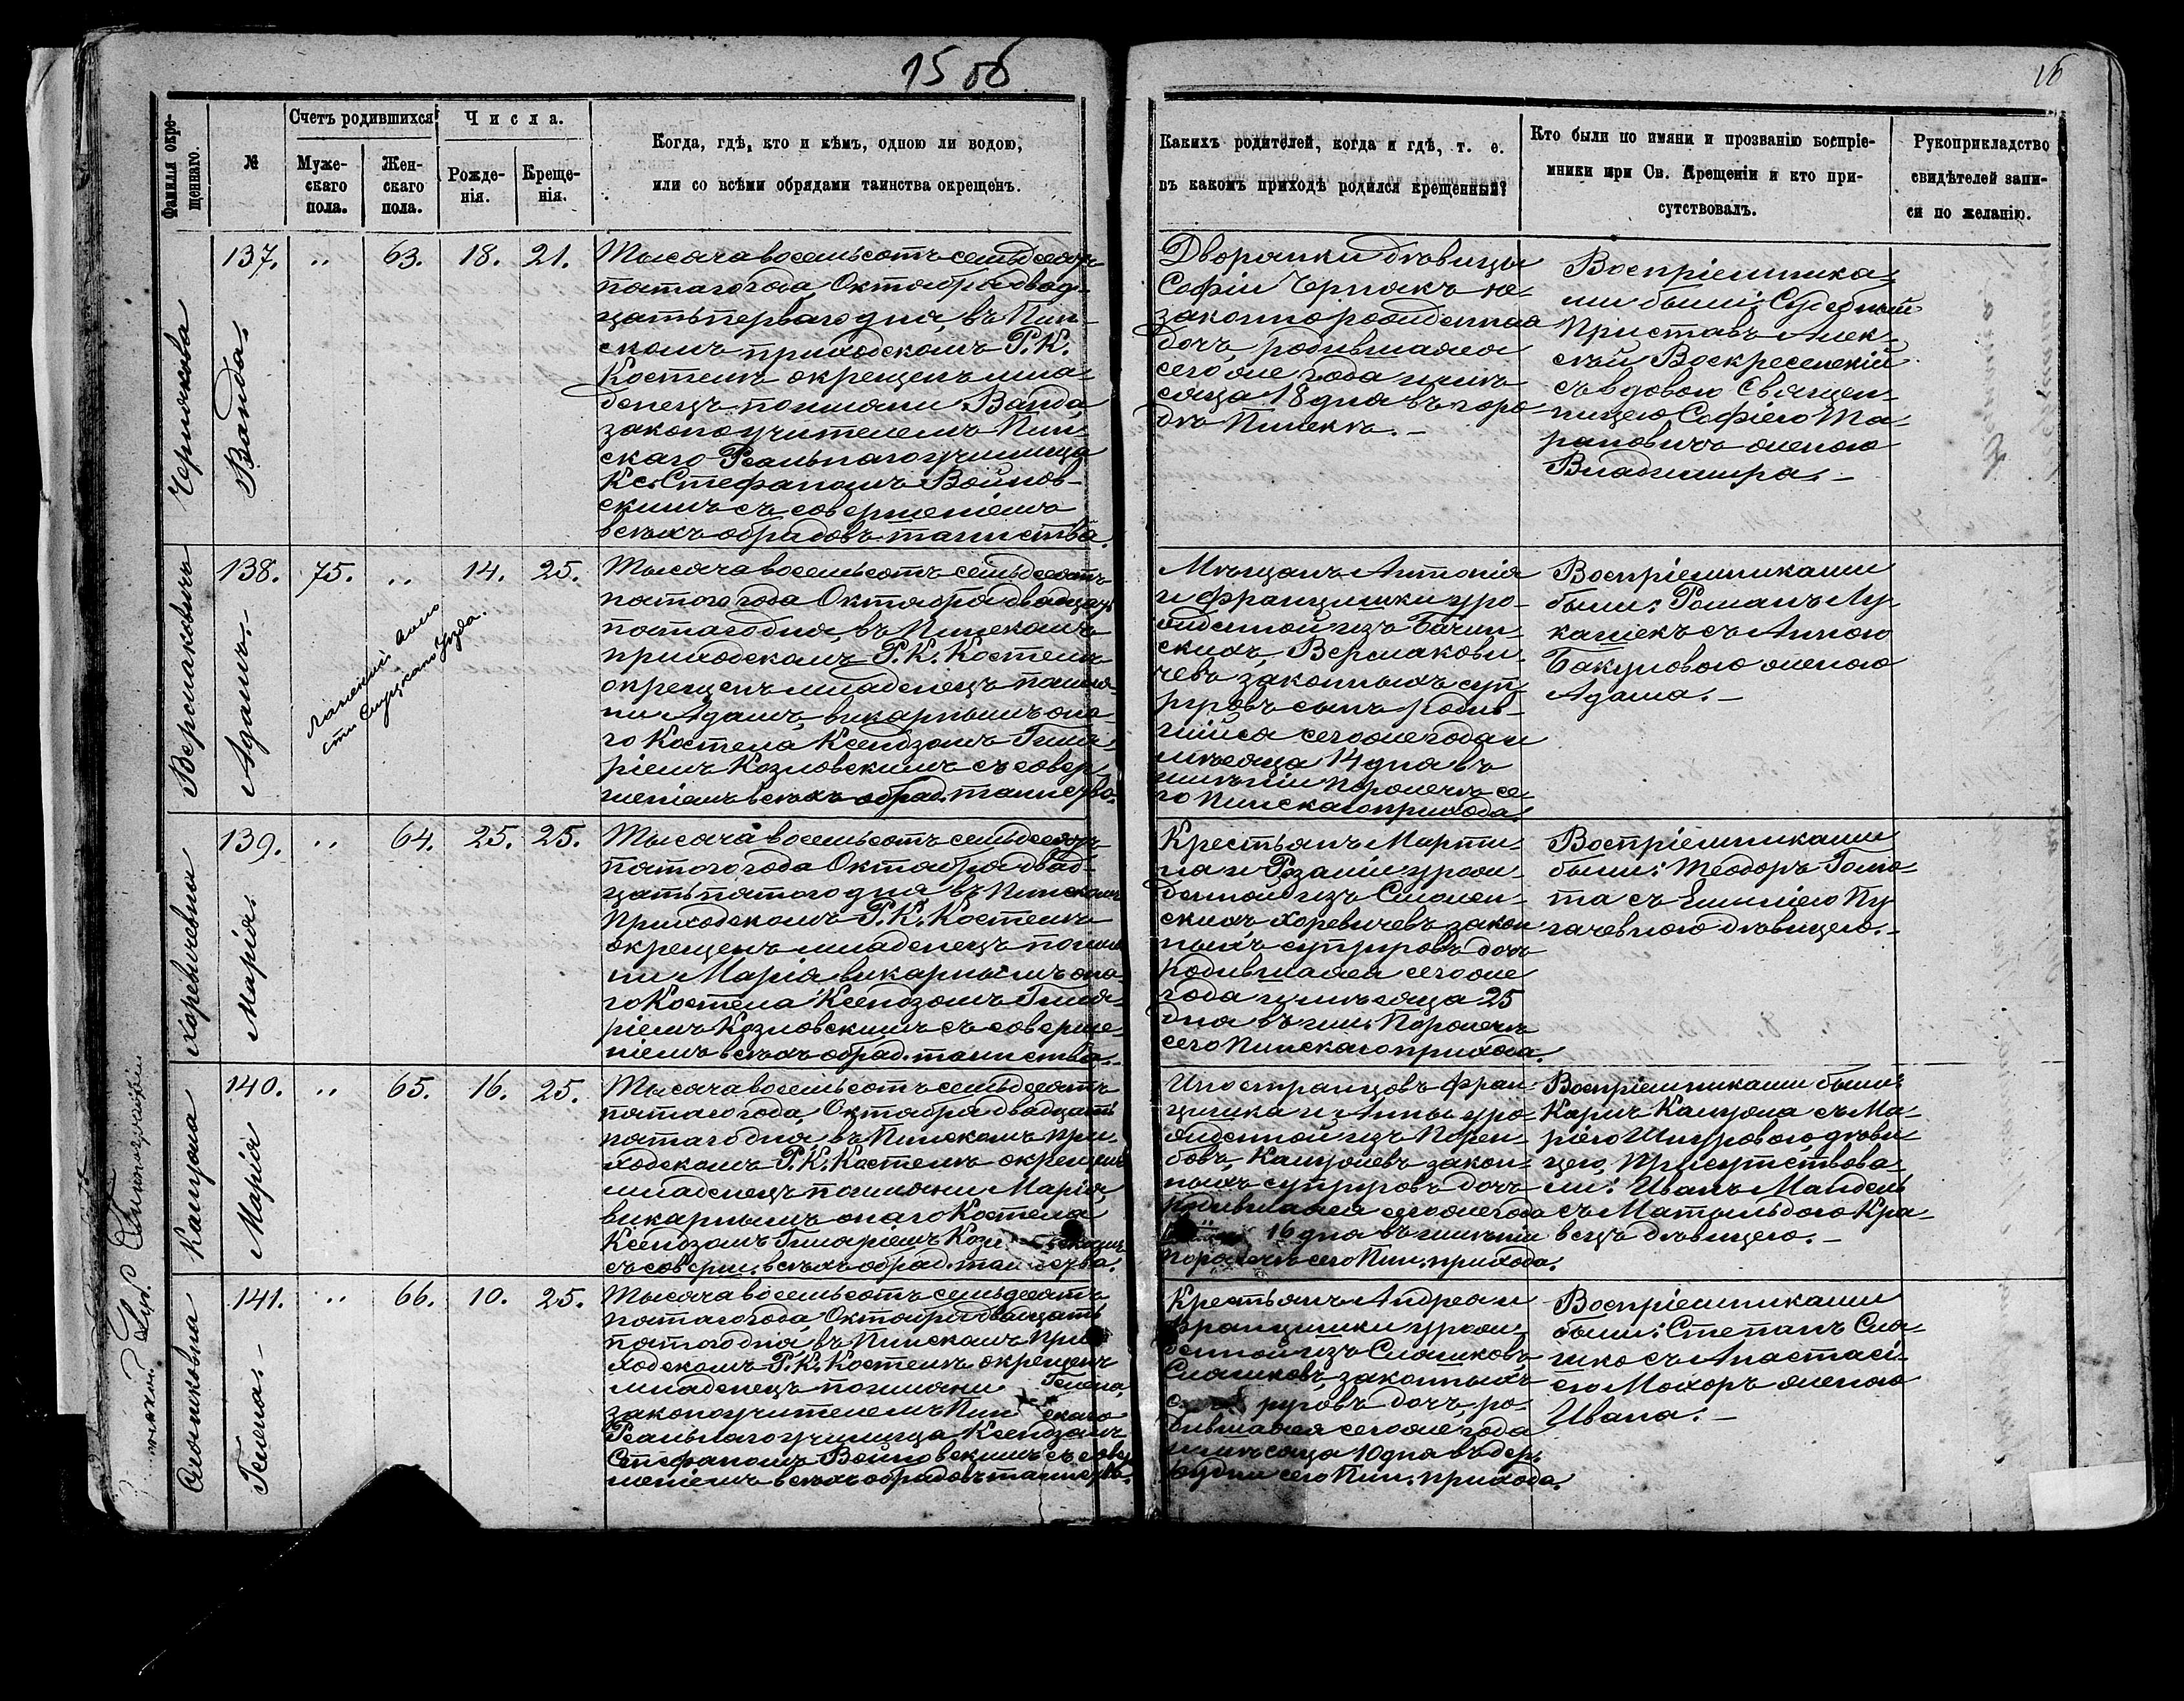 15 об
16
Фамилія окре-
щеннаго.
№
Счетъ родившихся
Муже-
скаго
пола.
Жен-
скаго
пола.
Числа.
Рожде-
нія.
Креще-
нія.
Когда, гдѣ, кто и кѣмъ, одною ли водою,
или со всѣми обрядами таинства окрещенъ.
Какихъ родителей, когда и гдѣ, т. е.
въ какомъ приходѣ родился крещенный?
Кто были по имяни и прозванію воспріе-
мники при Св. Крещеніи и кто при-
сутствовалъ.
Рукоприкладство
свидѣтелей запи-
си по желанію.
Чернякова
137.
Ванда.
"
63.
18.
21.
Тысяча восемьсотъ семьдесятъ
пятаго года Октября двад-
цать перваго дня, въ Пин-
скомъ приходскомъ Р. К.
Костелѣ окрещенъ мла-
денецъ по имяни Ванда,
законоучителемъ Пин-
скаго Реальнаго училища
Кс. Стефаномъ Войнов-
скимъ съ совершеніемъ
всѣхъ обрядовъ таинства.
Дворянки дѣвицы
Софіи Чернякъ не-
законнорожденная
дочь, родившаяся
сего же года и мѣ-
сяца 18 дня въ горо-
дѣ Пинскѣ. –
Воспріемника-
ми были: Судебный
Приставъ Алек-
сѣй Воскресенскій
съ вдовою Священ-
ницею Софіею Та-
рановичъ женою
Владиміра. –
138.
Адамъ.
75.
"
14.
25.
Тысяча восемьсотъ семьдесятъ
пятого года Октября двадцать
пятаго дня, въ Пинскомъ
приходскомъ Р. К. Костелѣ
окрещенъ младенецъ по имя-
ни Адамъ, викарнымъ она-
го Костела Ксендзомъ Гила-
ріемъ Козловскимъ съ совер-
шеніемъ всѣхъ обряд. таинства.
Мѣщанъ Антонія
и Францишки уро-
жденной изъ
скихъ, Вермакови-
чевъ законныхъ суп-
руговъ сынъ, родив-
шійся сего же года и
мѣсяца 14 дня въ
имѣніи Порѣчьѣ се-
го Пинскаго прихода.
Воспріемниками
были: Романъ Лу-
кашекъ съ Анною
Бакуновою женою
Адама. –
Хоревичевна
139.
Марія.
"
64.
25.
25.
Тысяча восемьсотъ семьдесятъ
пятого года Октября двад-
цать пятого дня въ Пинскомъ
Приходскомъ Р. К. Костелѣ
окрещенъ младенецъ по имя-
ни Марія викарнымъ она-
го Костела Ксендзомъ Гила-
ріемъ Козловскимъ съ соверше-
ніемъ всѣхъ обряд. таинства.
Крестьянъ Марти-
на и Розаліи урож-
денной изъ Смолен-
скихъ, Хоревичевъ закон-
ныхъ супруговъ дочь
родившаяся сего же
года и мѣсяца 25
дня въ им. Порѣчьѣ
сего Пинскаго прихода.
Воспріемниками
были: Теодоръ
съ Емиліею Пу-
гачевною дѣвицею. –
140.
Марія
"
65.
16.
25.
Тысяча восемьсотъ семьдесятъ
пятаго года, Октября двадцать
пятаго дня, въ Пинскомъ при-
ходскомъ Р. К. Костелѣ окрещенъ
младенецъ по имяни Марія,
викарнымъ онаго Костела
Ксендзомъ Гиларіемъ Козловскимъ
съ соверш. всѣхъ обряд. таинства.
Иностранцовъ Фран-
цишка и Анны уро-
жденной изъ
закон-
ныхъ супруговъ дочь
родившаяся сего же года
16 дня въ имѣніи
Порѣчьѣ сего Пин. прихода.
Воспріемниками были:
Карлъ съ Ма-
ріею дѣви-
цею, присутствова-
ли: Иванъ Мандель
съ Матильдою Кра-
вецъ дѣвицею. –
141.
Гелена. –
"
66.
10.
25.
Тысяча восемьсотъ семьдесятъ
пятаго года, Октября двадцать
пятого дня, въ Пинскомъ при-
ходскомъ Р. К. Костелѣ окрещенъ
младенецъ по имяни Гелена,
законоучителемъ Пинскаго
Реальнаго училища Ксендзомъ
Стефаномъ Войновскимъ съ совер-
шеніемъ всѣхъ обрядовъ таинства.
Крестьянъ Андрея и
Францишки урож-
денной изъ
законныхъ
руговъ дочь, ро-
дившаяся сего же года
и мѣсяца 10 дня въ дер.
сего Пин. прихода.
Воспріемниками
были: Степанъ
съ Анастасі-
ею Мохоръ женою
Ивана. –